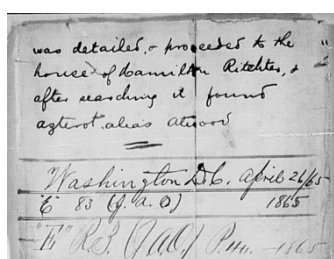 was detailed, & proceeded to the
house of Hamilton Ritchter, &
after searching it found
azterot, alias atwood
Washington D.C. April 26/65
"E" 83 (J. A. O) 1865
"E" R.B. (JAO) P. 1865